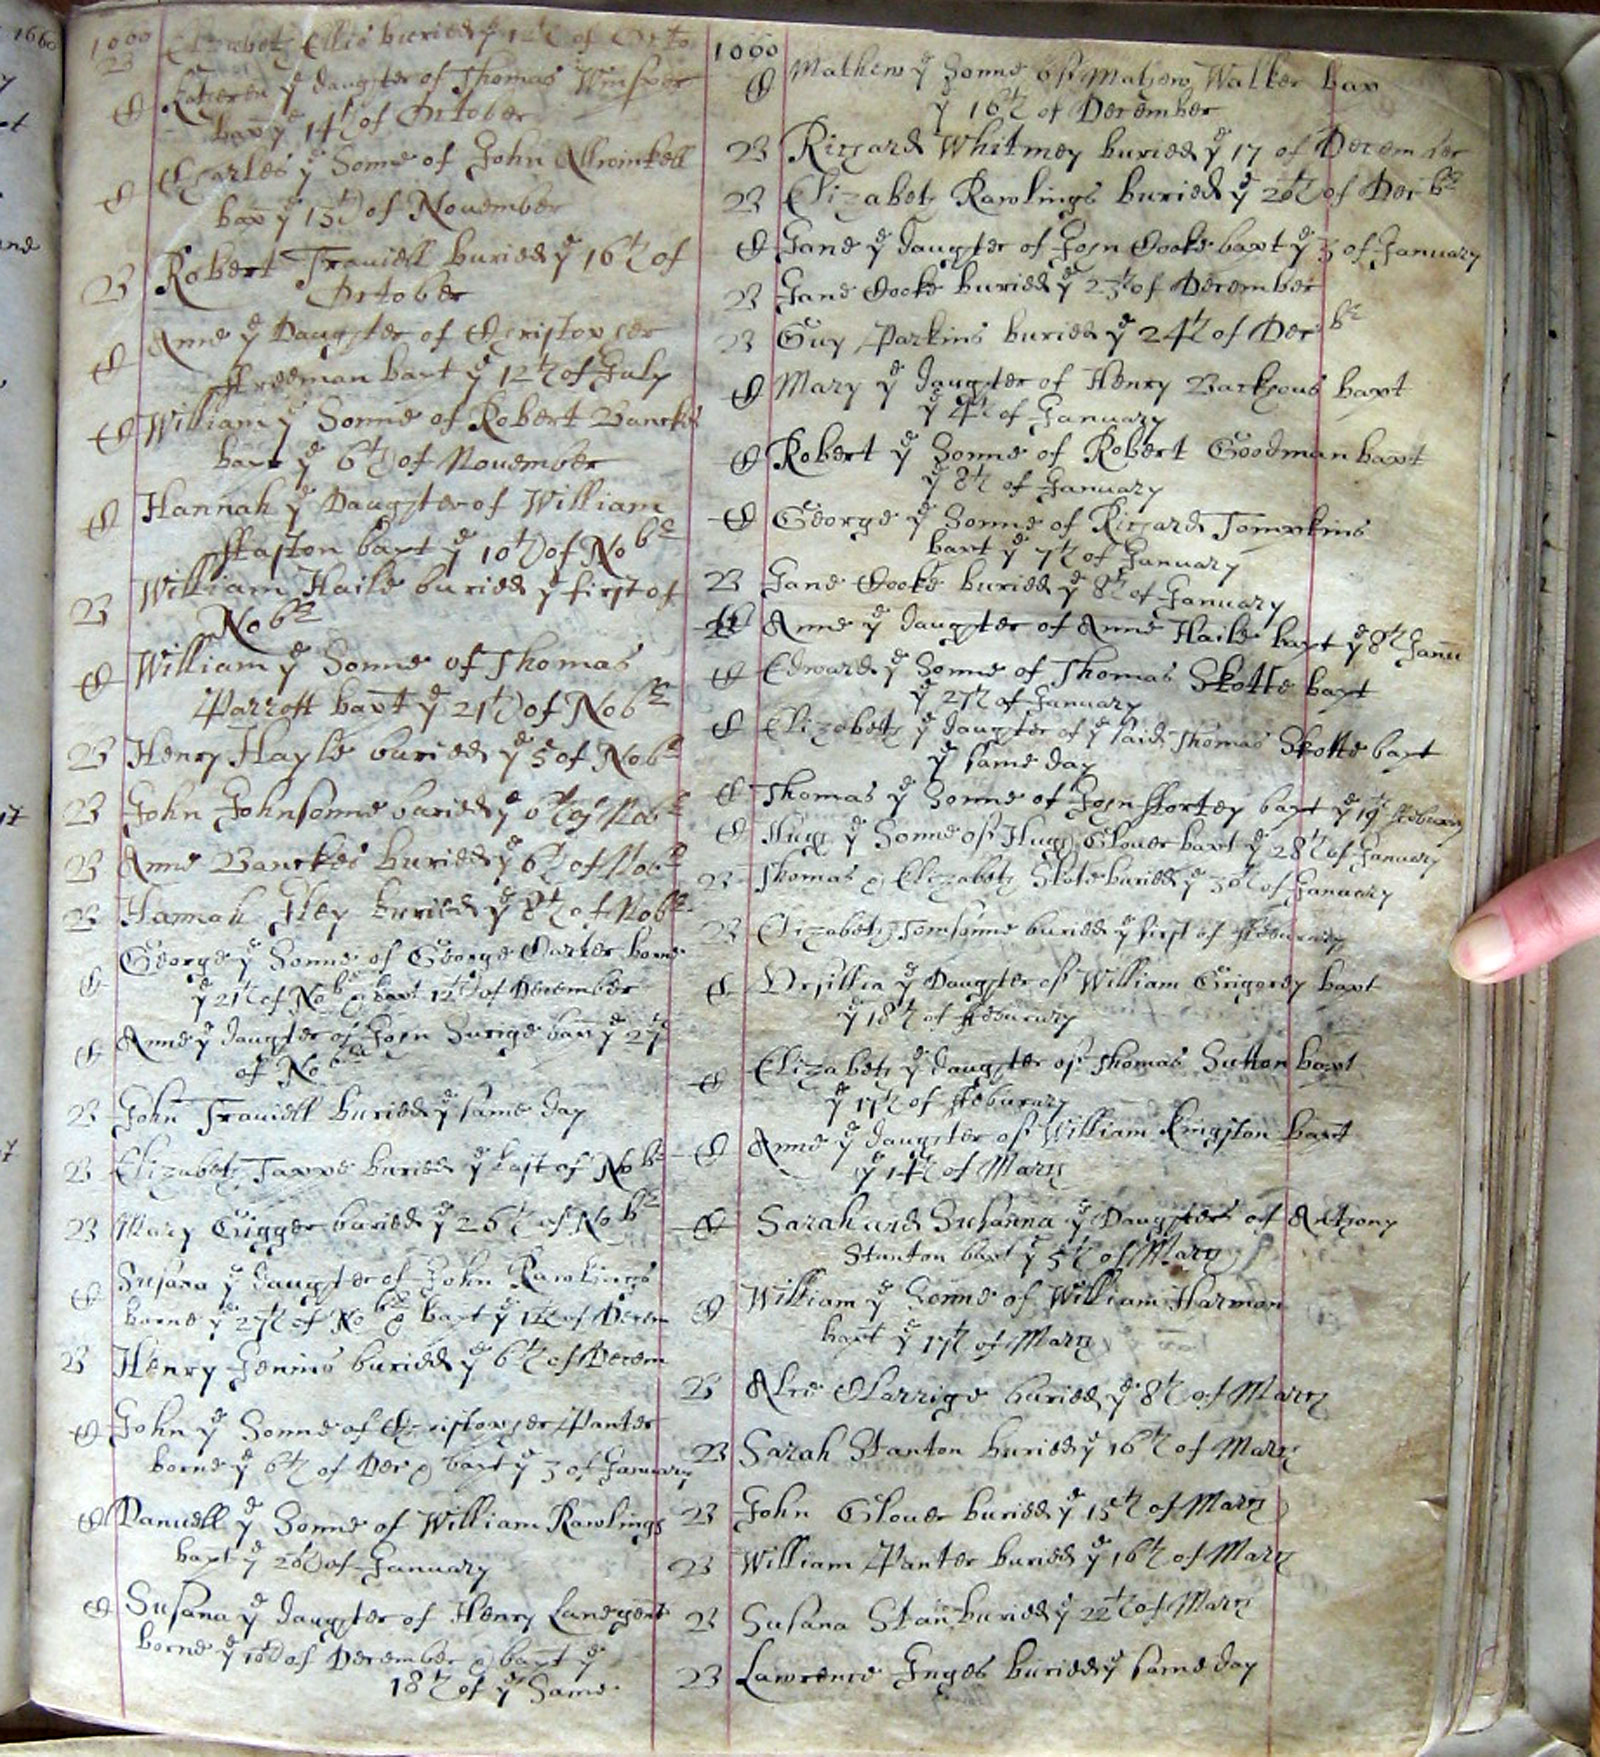 1660
1660
B Elizabeth Ellis buried ye 12th of Octo
C Katheren ye daughter of Thomas
bap ye 14th of October
C Charles ye Sonne of John Allwinkell
bap ye 15th of November
B Robert Travell buried ye 16th of
October
C Anne ye Daughter of Christopher
ffreeman bapt ye 12th of July
C William ye Sonne of Robert Banckes
bapt ye 6th of November
C Hannah ye Daughter of William
bapt ye 10th of Nobr
B William Haile buried ye first of
Nobr
C William ye Sonne of Thomas
Parrott bapt ye 21th of Nobr
B Henry Hayle buried ye 5 of Nobr
B John Johnsonne buried ye 6th of Nobr
B Anne Banckes buried ye 6th of Nobr
B Hannah buried ye 8th of Nobr
C George ye Sonne of George Carter borne
ye 21th of Nobr & bapt 12th of December
C Anne ye daughter of John bap ye 27
of Nobr
B John Travell buried ye same day
B Elizabeth buried ye last of Nobr
B Mary Gigger buried ye 26th of Nobr
C Susana ye daughter of John Rawlings
borne ye 27th of Nobr & bapt ye 12th of Decem
B Henry Jenins buried ye 6th of Decem
C John ye Sonne of Christopher Panter
borne ye 6th of Dec & bapt ye 3 of January
C Daniell ye Sonne of William Rawlings
bapt ye 20th of January
C Susana ye daughter of Henry
borne ye 10th of December & bapt ye
18th of ye Same
1660
C Mathew ye Sonne of Mathew Walker bap
ye 16th of December
B Richard Whitmey buried ye 17 of December
B Elizabeth Rawlings buried ye 20th of Decbr
C Jane ye daughter of John Cooke bapt ye 3 of January
B Jane Cooke buried ye 23th of December
B Guy Parkins buried ye 24th of Decbr
C Mary ye daughter of Henry Backhous bapt
ye 4th of January
C Robert ye Sonne of Robert Goodman bapt
ye 8th of January
C George ye Sonne of Richard Tompkins
bapt ye 7th of January
B Jane Cooke buried ye 8th of January
Anne ye daughter of Anne Haile bapt ye 8th Janu
C Edward ye Sonne of Thomas Skotte bapt
ye 27th of January
C Elizabeth ye daughter of ye said Thomas Skotte bapt
ye same day
C Thomas ye Sonne of John bapt ye 19
C Hugh ye Sonne of Hugh Glover bapt ye 28th of January
B Thomas & Elizabeth Skote buried ye 30th of January
B Elizabeth Tomsonne buried ye first of ffeburary
C Drsillia ye Daughter of William Grigorey bapt
ye 18th of ffeburary
C Elizabeth ye daughter of Thomas Sutton bapt
ye 17th of ffeburary
C Anne ye daughter of William Kingston bapt
ye 14th of March
C Sarah and Susanna ye Daughters of Anthony
Stanton bapt ye 5th of March
C William ye Sonne of William Harmon
bapt ye 17th of March
B Alce Clarrige buried ye 8th of March
B Sarah Stanton buried ye 16th of March
B John Glover buried ye 15th of March
B William Panter buried ye 16th of March
B Susana Stan buried ye 22th of March
B Lawrence Inges buried ye same day